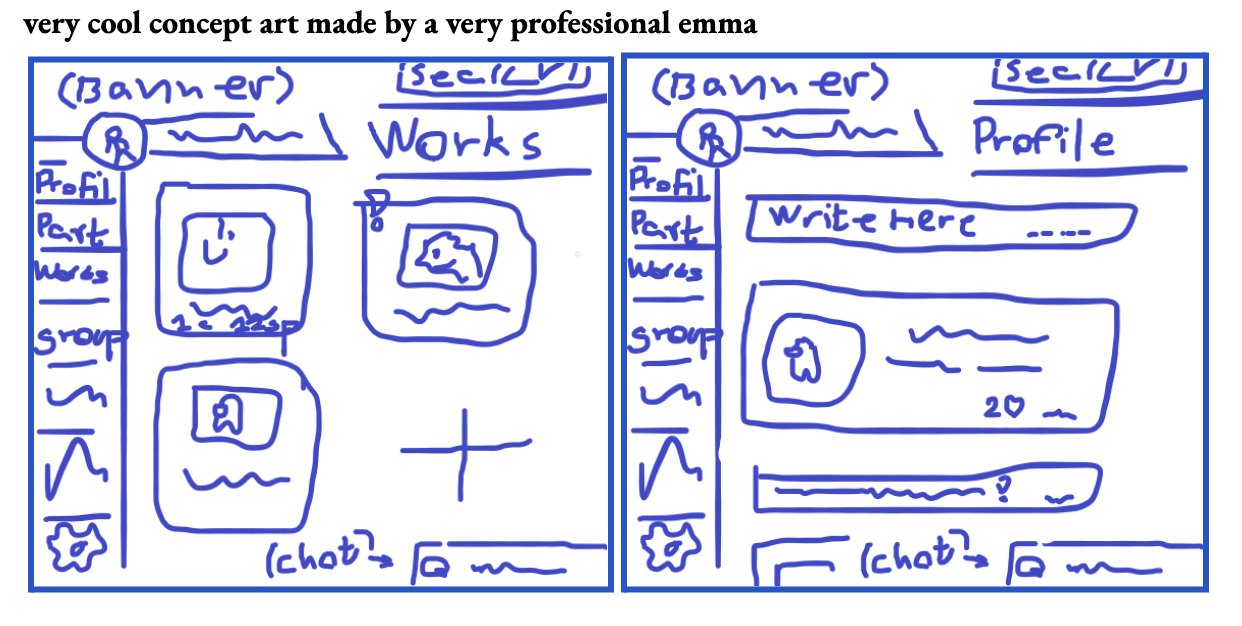 very cool concept art made by a very professional emma
(Banner)
Works
Profil
Part
Works
group
(chat?
(Banner)
Profile
Profil
Part
Works
group
Write Here
20
(chat?